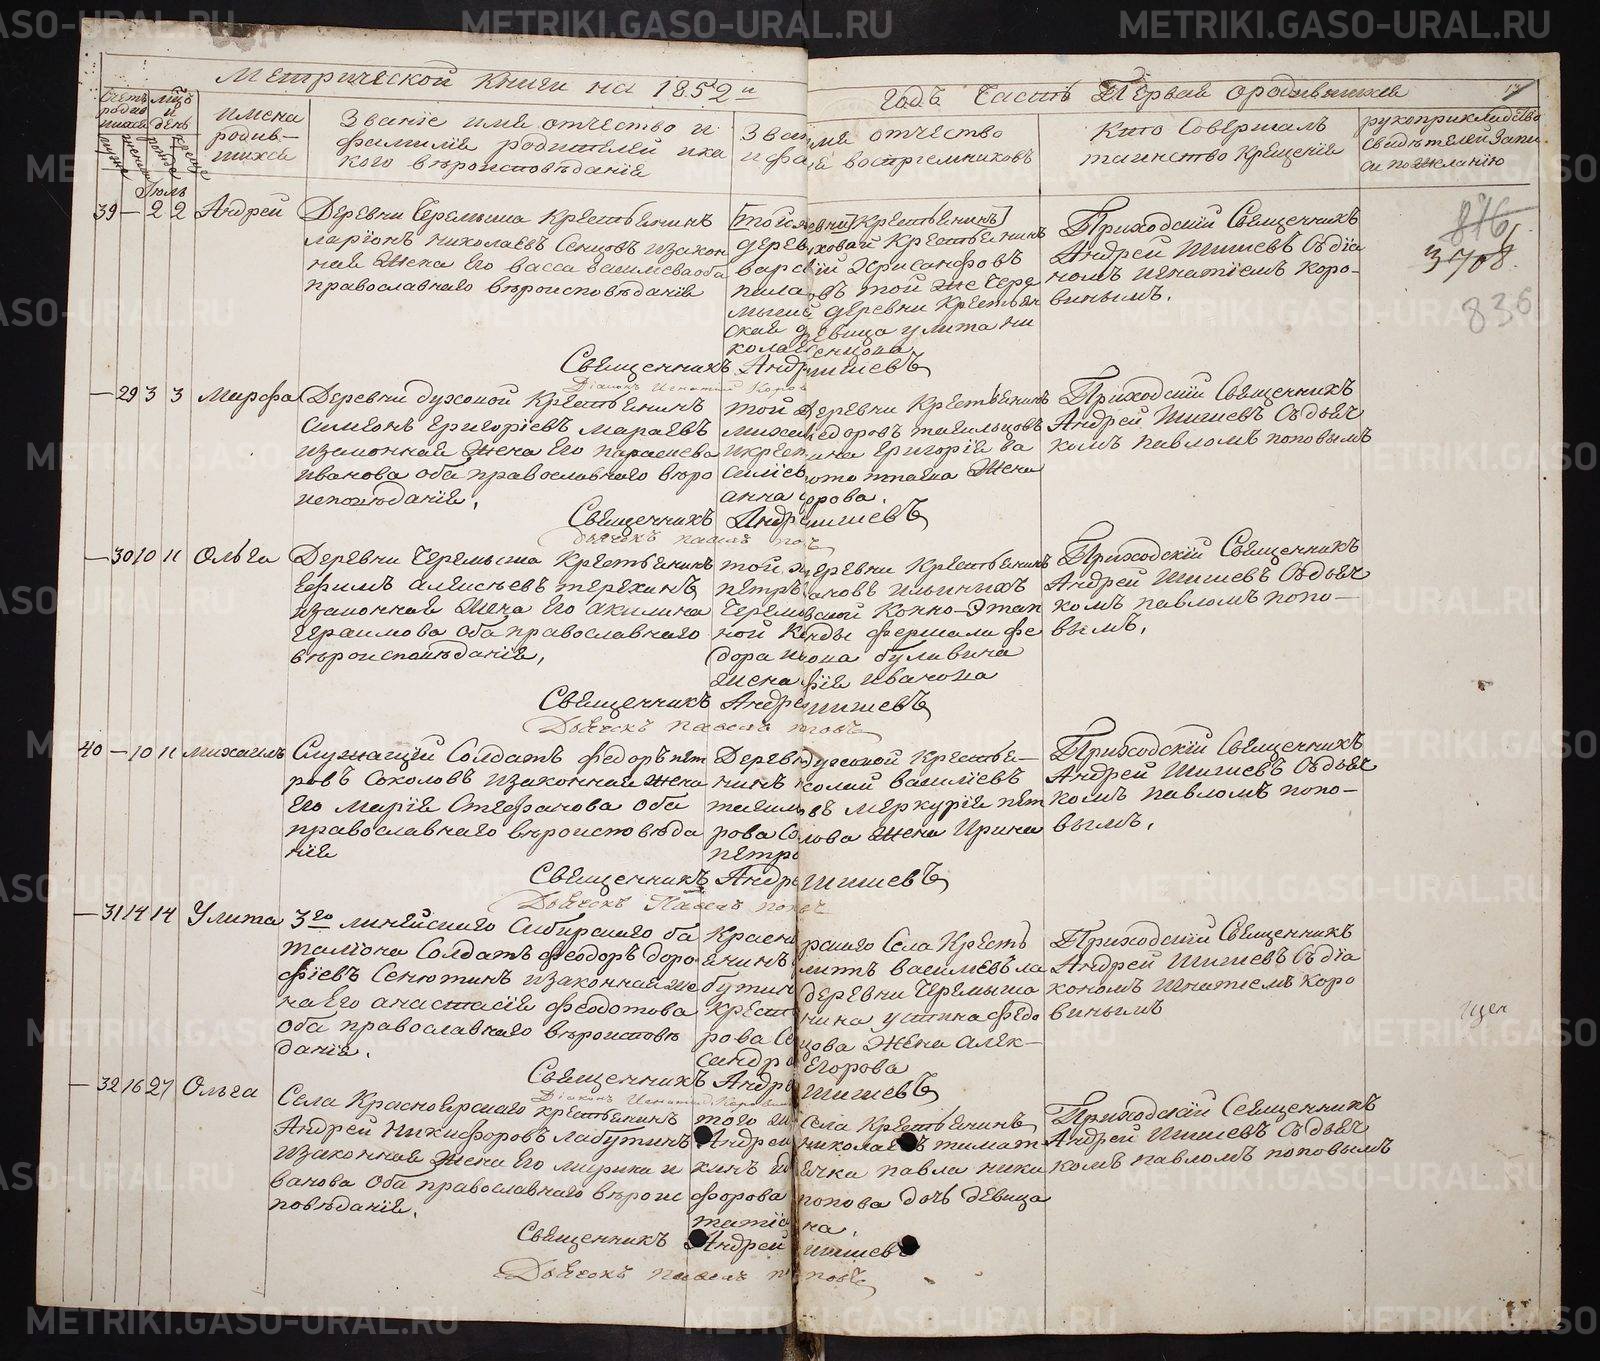 Метрической книги на 1852й
годъ Часть Первая ородившихся
Счетъ родившихся
Мцъ и день
имена
родив-
шихся
Званіе имя отчество и
фамилія родителей ика
кого вѣроисповѣданія
Зван имя отчество
и фа воспріемниковъ
кто совершалъ
таинство крещенія
рукоприкладство
свидѣтелей запи
си пожеланію
Іюль
39 — 2 2 Андрей
Деревни Черемыша Крестьянинъ
ларіонъ николаевъ Сенцовъ изакон
ная жена его васса
православнаго вѣроисповѣданія
Крестьянинъ
дерев ховай Крестьянинъ
Хрисанфовъ
въ той же Чере
мыше деревни Крестьян
ская девица улита ни
колае
Приходскій Священникъ
Андрей Шишевъ Съдіа
кономъ игнатіемъ Коро-
винымъ.
876
3708.
836
Священникъ Андр шишевъ
Діаконъ Игнатій Коров
— 29 3 3 Марфа
Деревни духовой Крестьянинъ
Симеонъ Григоріевъ Мараевъ
изаконная жена его параскева
иванова оба православнаго вѣро
исповѣданія.
той деревни Крестьянинъ
михаи едоровъ
икрест ина григорія ва
силіев жена
анна орова.
Приходскій Священникъ
Андрей Шишевъ Съдьяч
комъ павломъ поповымъ
Священникъ Андре шишевъ
дьячокъ павелъ поп
— 30 10 11 Ольга
Деревни Черемыша Крестьянинъ
Ефимъ алексѣевъ терехинъ
изаконная жена его акилина
Герасимова оба православнаго
вѣроисповѣданія,
той деревни Крестьянинъ
петръ ановъ ильиныхъ
Черемы Конно-Этап
ной Ко нды фершала фе
дора и булавина
жена фія иванова
Приходскій Священникъ
Андрей Шишевъ Съдьяч
комъ павломъ попо—
вымъ.
Священникъ Андре шишевъ
Дьячокъ павелъ повъ
40 — 10 11 михаилъ
Служащій Солдатъ федоръ пет
ровъ Соколовъ изаконная жена
его Марія Стефанова оба
православнаго вѣроисповѣда
нія
Деревн духовой Крестья—
нинъ колай василіевъ
въ меркурія пет
рова Со лова жена Ирина
петро
Приходскій Священникъ
Андрей Шишевъ Съдьяч
комъ павломъ попо—
вымъ.
Священникъ Андр шишевъ
Дьячокъ Павелъ попов
— 31 14 14 Улита
3го линейскаго Сибирскаго ба
таліона Солдатъ феодоръ доро
фіевъ Сенютинъ изаконная же
на его анастасія феодотова
оба православнаго вѣроисповѣ
данія.
Красно рскаго Села Кресть
янинъ литъ василіевъ ла
бутин деревни Черемыша
Крест нина устина федо
рова Се цова жена алек—
сандра Егорова
Приходскій Священникъ
Андрей Шишевъ Съдіа
кономъ Игнатіемъ Коро
винымъ
Священникъ Андр шишевъ
Діаконъ Игнатій Коровинъ
— 32 16 27 Ольга
Села Красноярскаго крестьянинъ
Андрей Никифоровъ лабутинъ
изаконная жена его мирика и
ванова оба православнаго вѣроис
повѣданія.
того же села Крестьянинъ
Андрей николаевъ тимат
кинъ ячка павла ники
форова попова дочь девица
татіа на.
Приходскій Священникъ
Андрей Шишевъ Съдьяч
комъ павломъ поповымъ
Священникъ Андрей шишевъ
Дьячокъ павелъ п повъ
METRIKI.GASO-URAL.RU